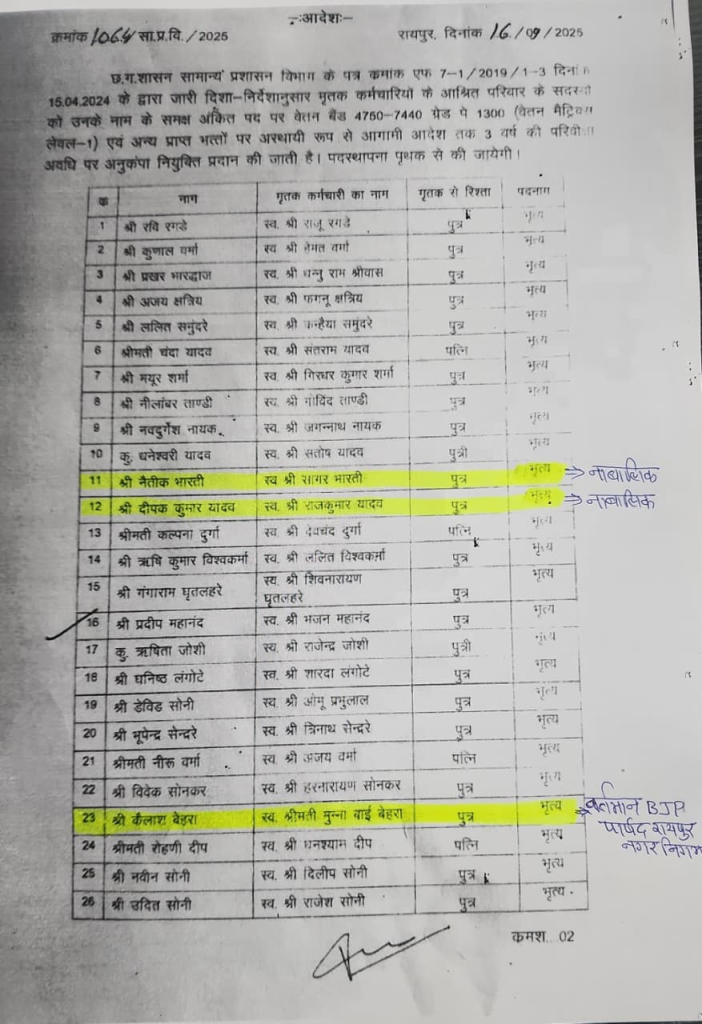 -:आदेशः-
क्रमांक 1064 सा.प्र.वि. / 2025 रायपुर, दिनांक 16/09/2025
छ.ग.शासन सामान्य प्रशासन विभाग के पत्र कमांक एफ 7-1/2019/1-3 दिनांक
15.04.2024 के द्वारा जारी दिशा-निर्देशानुसार मृतक कर्मचारियों के आश्रित परिवार के सदस्यों
को उनके नाम के समक्ष अंकित पद पर वेतन बैंड 4750-7440 ग्रेड पे 1300 (वेतन मैट्रिक्स
लेवल-1) एवं अन्य प्राप्त भत्तों पर अस्थायी रूप से आगामी आदेश तक 3 वर्ष की परिवीक्षा
अवधि पर अनुकंपा नियुक्ति प्रदान की जाती है। पदस्थापना पृथक से की जायेगी।
क नाम मृतक कर्मचारी का नाम मृतक से रिश्ता पदनाम
1 श्री रवि रगडे स्व. श्री राजू रगडे पुत्र भृत्य
2 श्री कुणाल वर्मा स्व. श्री हेमत वर्मा पुत्र भृत्य
3 श्री प्रखर भारद्वाज स्व. श्री धन्नु राम श्रीवास पुत्र भृत्य
4 श्री अजय क्षत्रिय स्व. श्री फगनू क्षत्रिय पुत्र भृत्य
5 श्री ललित समुंदरे स्व. श्री कन्हैया समुंदरे पुत्र भृत्य
6 श्रीमती चंदा यादव स्व. श्री संतराम यादव पत्नि भृत्य
7 श्री मयूर शर्मा स्व. श्री गिरधर कुमार शर्मा पुत्र भृत्य
8 श्री नीलांबर ताण्डी स्व. श्री गोविंद ताण्डी पुत्र भृत्य
9 श्री नवदुर्गेश नायक स्व. श्री जगन्नाथ नायक पुत्र भृत्य
10 कु. धनेश्वरी यादव स्व. श्री संतोष यादव पुत्री भृत्य
11 श्री नैतीक भारती स्व श्री सागर भारती पुत्र भृत्य → नाबालिक
12 श्री दीपक कुमार यादव स्व. श्री राजकुमार यादव पुत्र भृत्य → नाबालिक
13 श्रीमती कल्पना दुर्गा स्व. श्री देवचंद दुर्गा पत्नि भृत्य
14 श्री ऋषि कुमार विश्वकर्मा स्व. श्री ललित विश्वकर्मा पुत्र भृत्य
15 श्री गंगाराम घृतलहरे स्व. श्री शिवनारायण पुत्र भृत्य
घृतलहरे
16 श्री प्रदीप महानंद स्व. श्री भजन महानंद पुत्र भृत्य
17 कु. ऋषिता जोशी स्व. श्री राजेन्द्र जोशी पुत्री भृत्य
18 श्री घनिष्ठ लंगोटे स्व. श्री शारदा लंगोटे पुत्र भृत्य
19 श्री डेविड सोनी स्व. श्री ओमू प्रभुलाल पुत्र भृत्य
20 श्री भूपेन्द्र सेन्दरे स्व. श्री त्रिनाथ सेन्दरे पुत्र भृत्य
21 श्रीमती नीरू वर्मा स्व. श्री अजय वर्मा पत्नि भृत्य
22 श्री विवेक सोनकर स्व. श्री हरनारायण सोनकर पुत्र भृत्य
23 श्री कैलाश बेहरा स्व. श्रीमती मुन्ना बाई बेहरा पुत्र भृत्य → वर्तमान BJP
पार्षद रायपुर
नगर निगम
24 श्रीमती रोहणी दीप स्व. श्री घनश्याम दीप पत्नि भृत्य
25 श्री नवीन सोनी स्व. श्री दिलीप सोनी पुत्र भृत्य
26 श्री उदित सोनी स्व. श्री राजेश सोनी पुत्र भृत्य
कमश...02